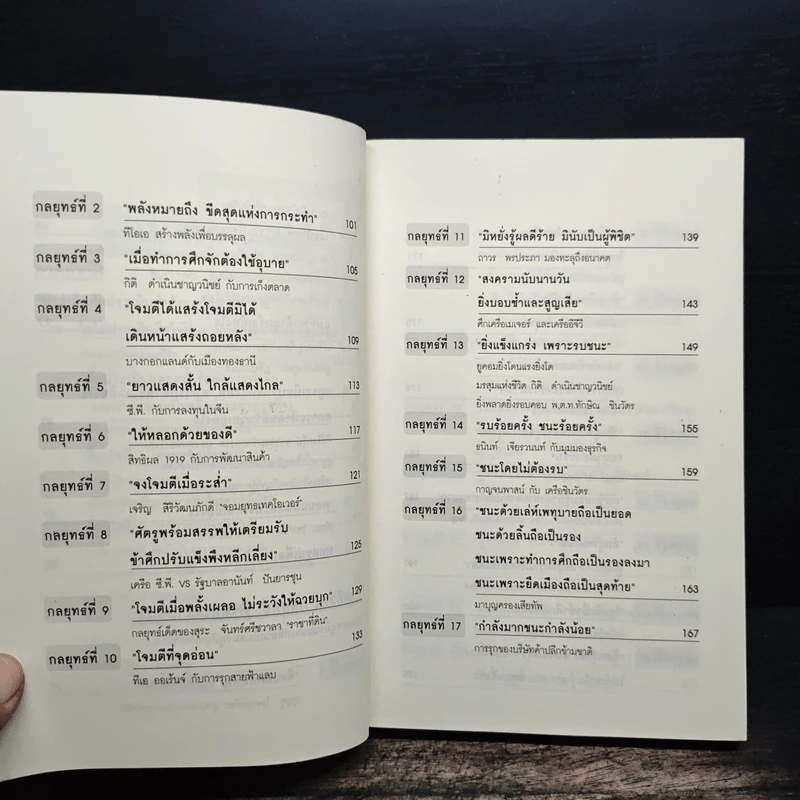 กลยุทธ์ที่ 2 "พลังหมายถึง ขีดสุดแห่งการกระทำ" 101
ทีโอเอ สร้างพลังเพื่อบรรลุผล
กลยุทธ์ที่ 3 "เมื่อทำการศึกจักต้องใช้อุบาย" 105
กิติ ดำเนินชาญวนิชย์ กับการเก็งตลาด
กลยุทธ์ที่ 4 "โจมตีได้แสร้งโจมตีมิได้
เดินหน้าแสร้งถอยหลัง" 109
บางกอกแลนด์กับเมืองทองธานี
กลยุทธ์ที่ 5 "ยาวแสดงสั้น ใกล้แสดงไกล" 113
ซี.พี. กับการลงทุนในจีน
กลยุทธ์ที่ 6 "ให้หลอกด้วยของดี" 117
สิทธิผล 1919 กับการพัฒนาสินค้า
กลยุทธ์ที่ 7 "จงโจมตีเมื่อระส่ำ" 121
เจริญ สิริวัฒนภักดี "จอมยุทธเทคโอเวอร์"
กลยุทธ์ที่ 8 "ศัตรูพร้อมสรรพให้เตรียมรับ
ข้าศึกปรับแข็งพึงหลีกเลี่ยง" 125
เครือ ซี.พี. VS รัฐบาลอานันท์ ปันยารชุน
กลยุทธ์ที่ 9 "โจมตีเมื่อพลั้งเผลอ ไม่ระวังให้ฉวยบุก" 129
กลยุทธ์เด็ดของสุระ จันทร์ศรีชวาลา "ราชาที่ดิน"
กลยุทธ์ที่ 10 "โจมตีที่จุดอ่อน" 133
ทีเอ ออเร้นจ์ กับการรุกสายฟ้าแลบ
กลยุทธ์ที่ 11 "มิหยั่งรู้ผลดีร้าย มินับเป็นผู้พิชิต" 139
ถาวร พรประภา มองทะลุถึงอนาคต
กลยุทธ์ที่ 12 "สงครามนับนานวัน
ยิ่งบอบช้ำและสูญเสีย" 143
ศึกเครือเมเจอร์ และเครืออีจีวี
กลยุทธ์ที่ 13 "ยิ่งแข็งแกร่ง เพราะรบชนะ" 149
ยูคอมยิ่งโดนแรงยิ่งโต
มรสุมแห่งชีวิต กิติ ดำเนินชาญวนิชย์
ยิ่งพลาดยิ่งรอบคอบ พ.ต.ท.ทักษิณ ชินวัตร
กลยุทธ์ที่ 14 "รบร้อยครั้ง ชนะร้อยครั้ง" 155
ธนินท์ เจียรวนนท์ กับมุมมองธุรกิจ
กลยุทธ์ที่ 15 "ชนะโดยไม่ต้องรบ" 159
กาญจนพาสน์ กับ เครือชินวัตร
กลยุทธ์ที่ 16 "ชนะด้วยเล่ห์เพทุบายถือเป็นยอด
ชนะด้วยลิ้นถือเป็นรอง
ชนะเพราะทำการศึกถือเป็นรองลงมา
ชนะเพราะยึดเมืองถือเป็นสุดท้าย" 163
มาบุญครองเสียทัพ
กลยุทธ์ที่ 17 "กำลังมากชนะกำลังน้อย" 167
การรุกของบริษัทค้าปลีกข้ามชาติ